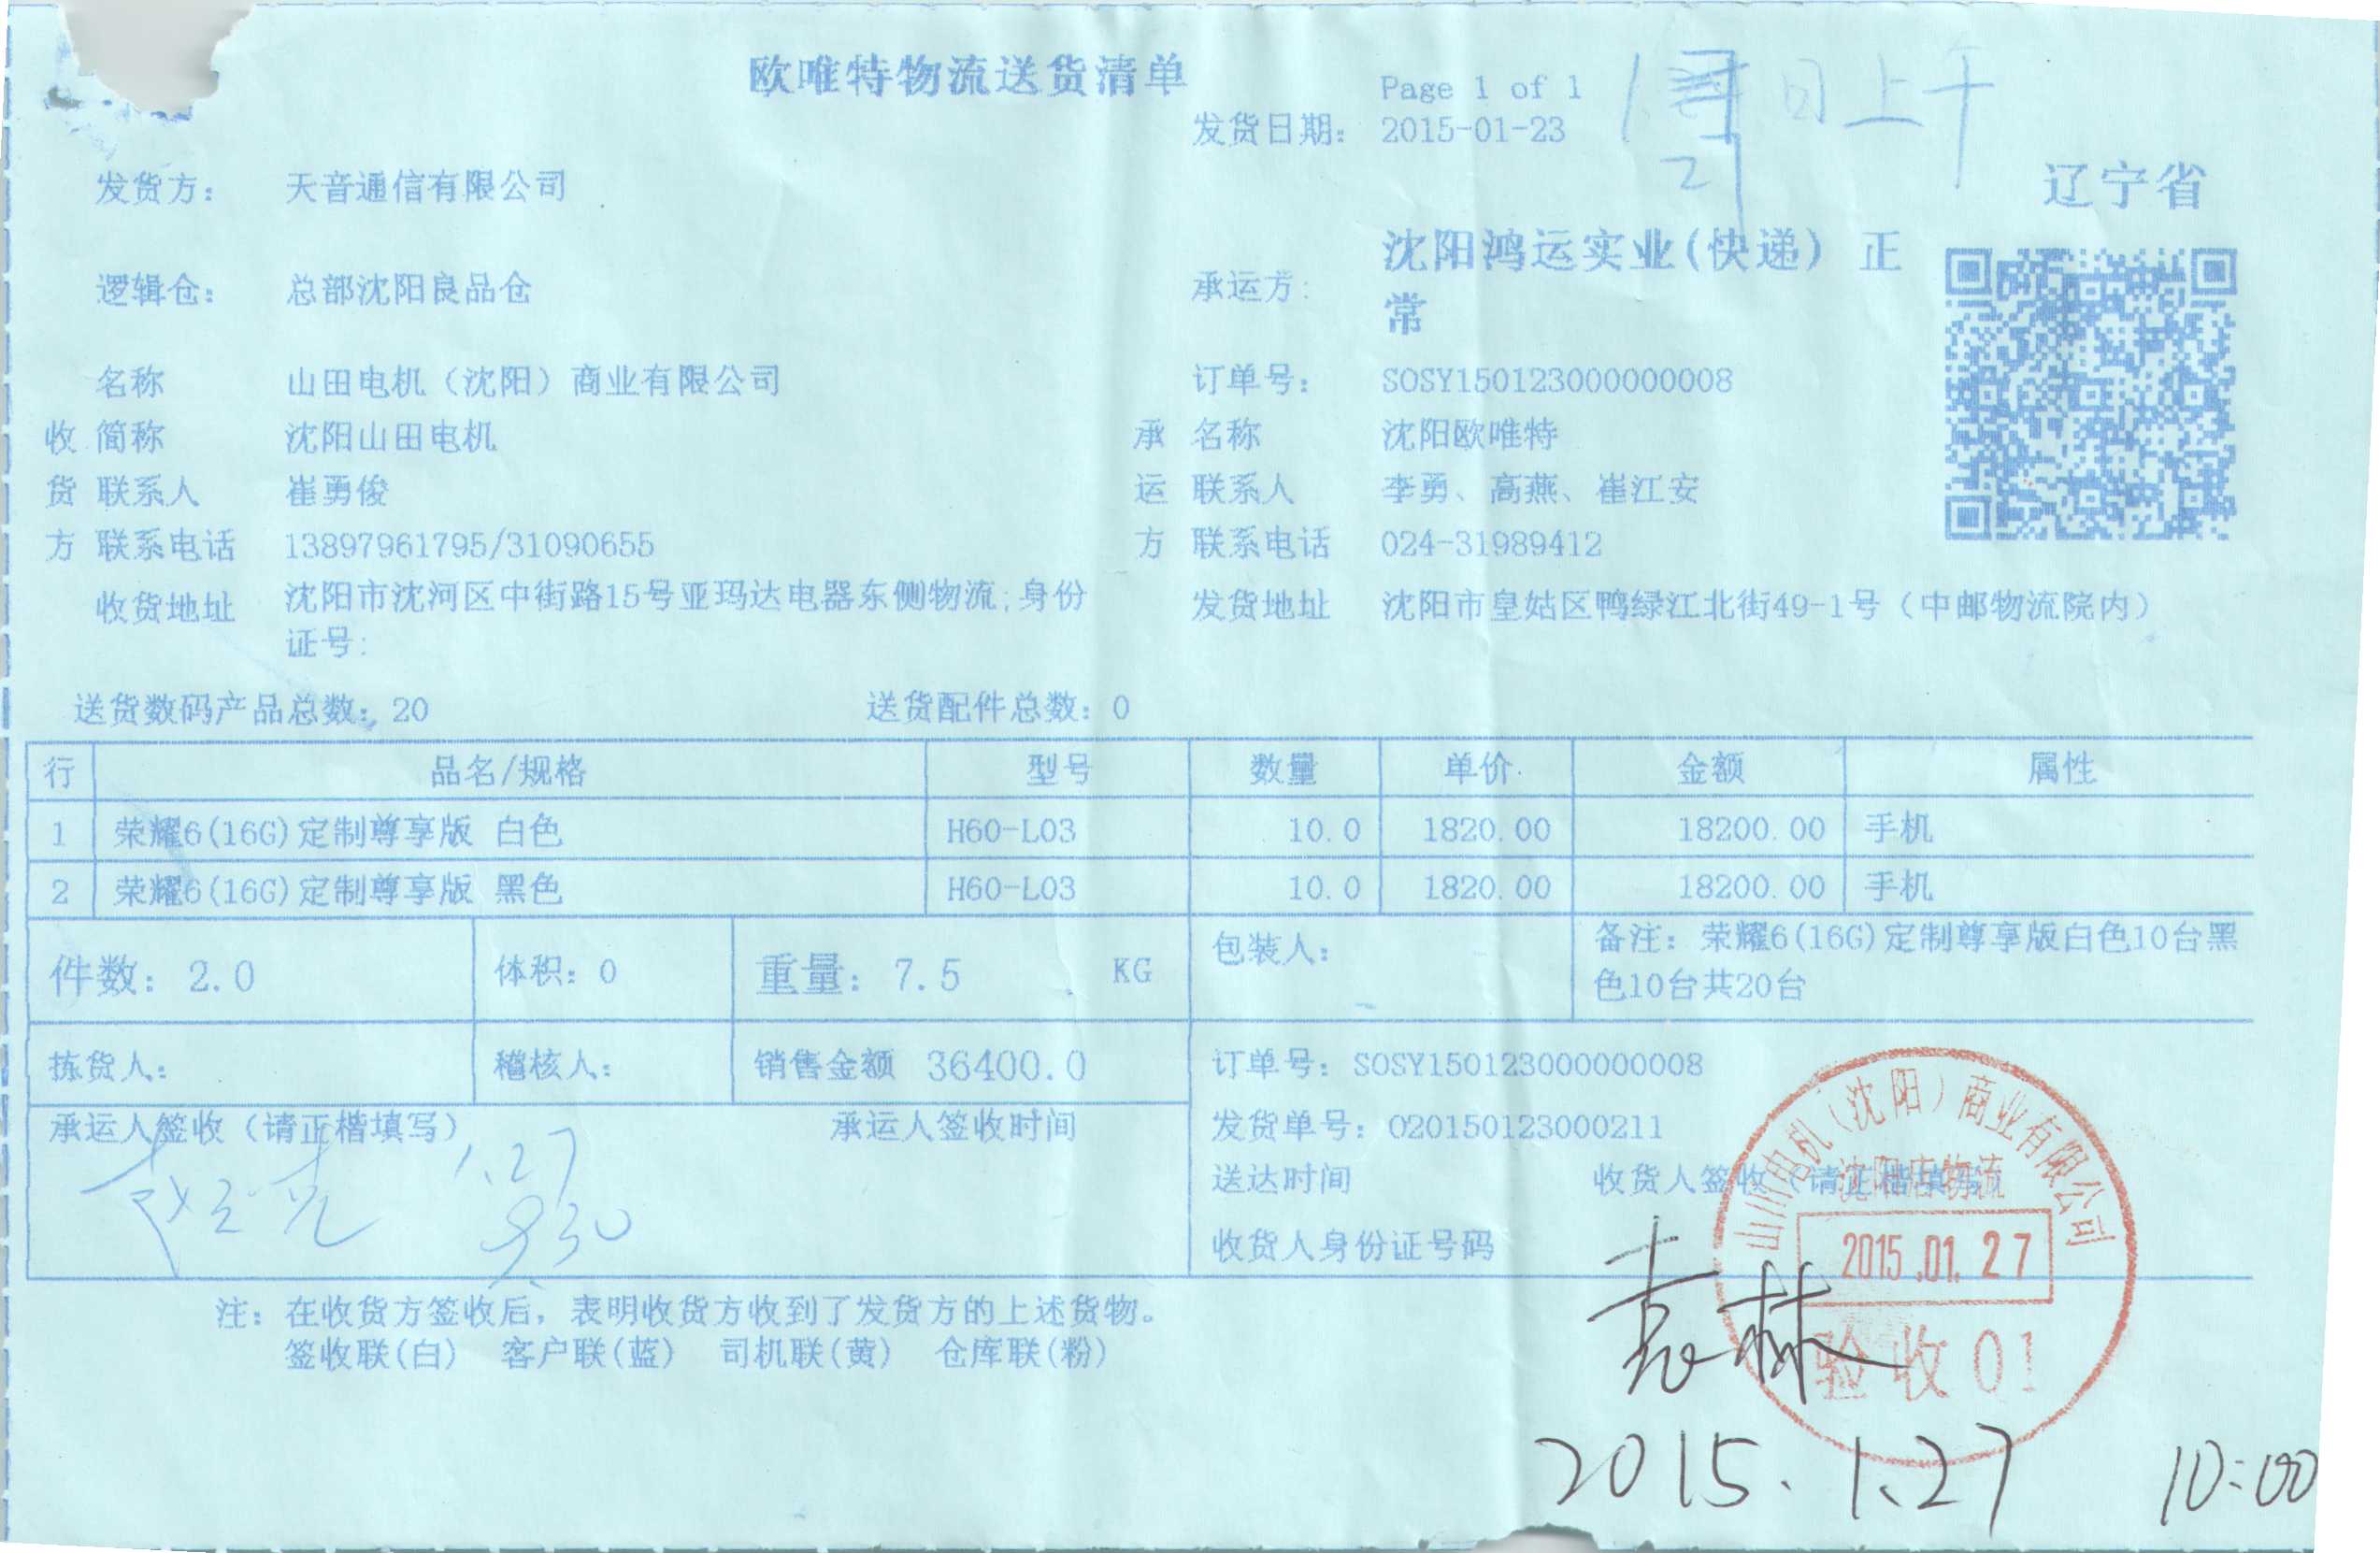 欧唯特物流送货清单
Page 1 of 1
发货日期: 2015-01-23
日上午
27
辽宁省
发货方: 天音通信有限公司
承运方: 沈阳鸿运实业(快递) 正常
逻辑仓: 总部沈阳良品仓
名称 山田电机（沈阳）商业有限公司
订单号: SOSY150123000000008
收 简称 沈阳山田电机
承 名称 沈阳欧唯特
货 联系人 崔勇俊
运 联系人 李勇、高燕、崔江安
方 联系电话 13897961795/31090655
方 联系电话 024-31989412
收货地址 沈阳市沈河区中街路15号亚玛达电器东侧物流;身份
证号:
发货地址 沈阳市皇姑区鸭绿江北街49-1号（中邮物流院内）
送货数码产品总数: 20 送货配件总数: 0
行 品名/规格 型号 数量 单价 金额 属性
1 荣耀6(16G)定制尊享版 白色 H60-L03 10.0 1820.00 18200.00 手机
2 荣耀6(16G)定制尊享版 黑色 H60-L03 10.0 1820.00 18200.00 手机
件数: 2.0 体积: 0 重量: 7.5 KG 包装人:
备注: 荣耀6(16G)定制尊享版白色10台黑
色10台共20台
拣货人: 稽核人: 销售金额 36400.0 订单号: SOSY150123000000008
承运人签收（请正楷填写） 承运人签收时间
发货单号: O20150123000211
1.27
9:30
送达时间 收货人签收（请正楷填写）
收货人身份证号码
山田电机（沈阳）商业有限公司
沈阳店物流
2015.01.27
验收01
袁林
2015.1.27 10:00
注: 在收货方签收后，表明收货方收到了发货方的上述货物。
签收联(白) 客户联(蓝) 司机联(黄) 仓库联(粉)